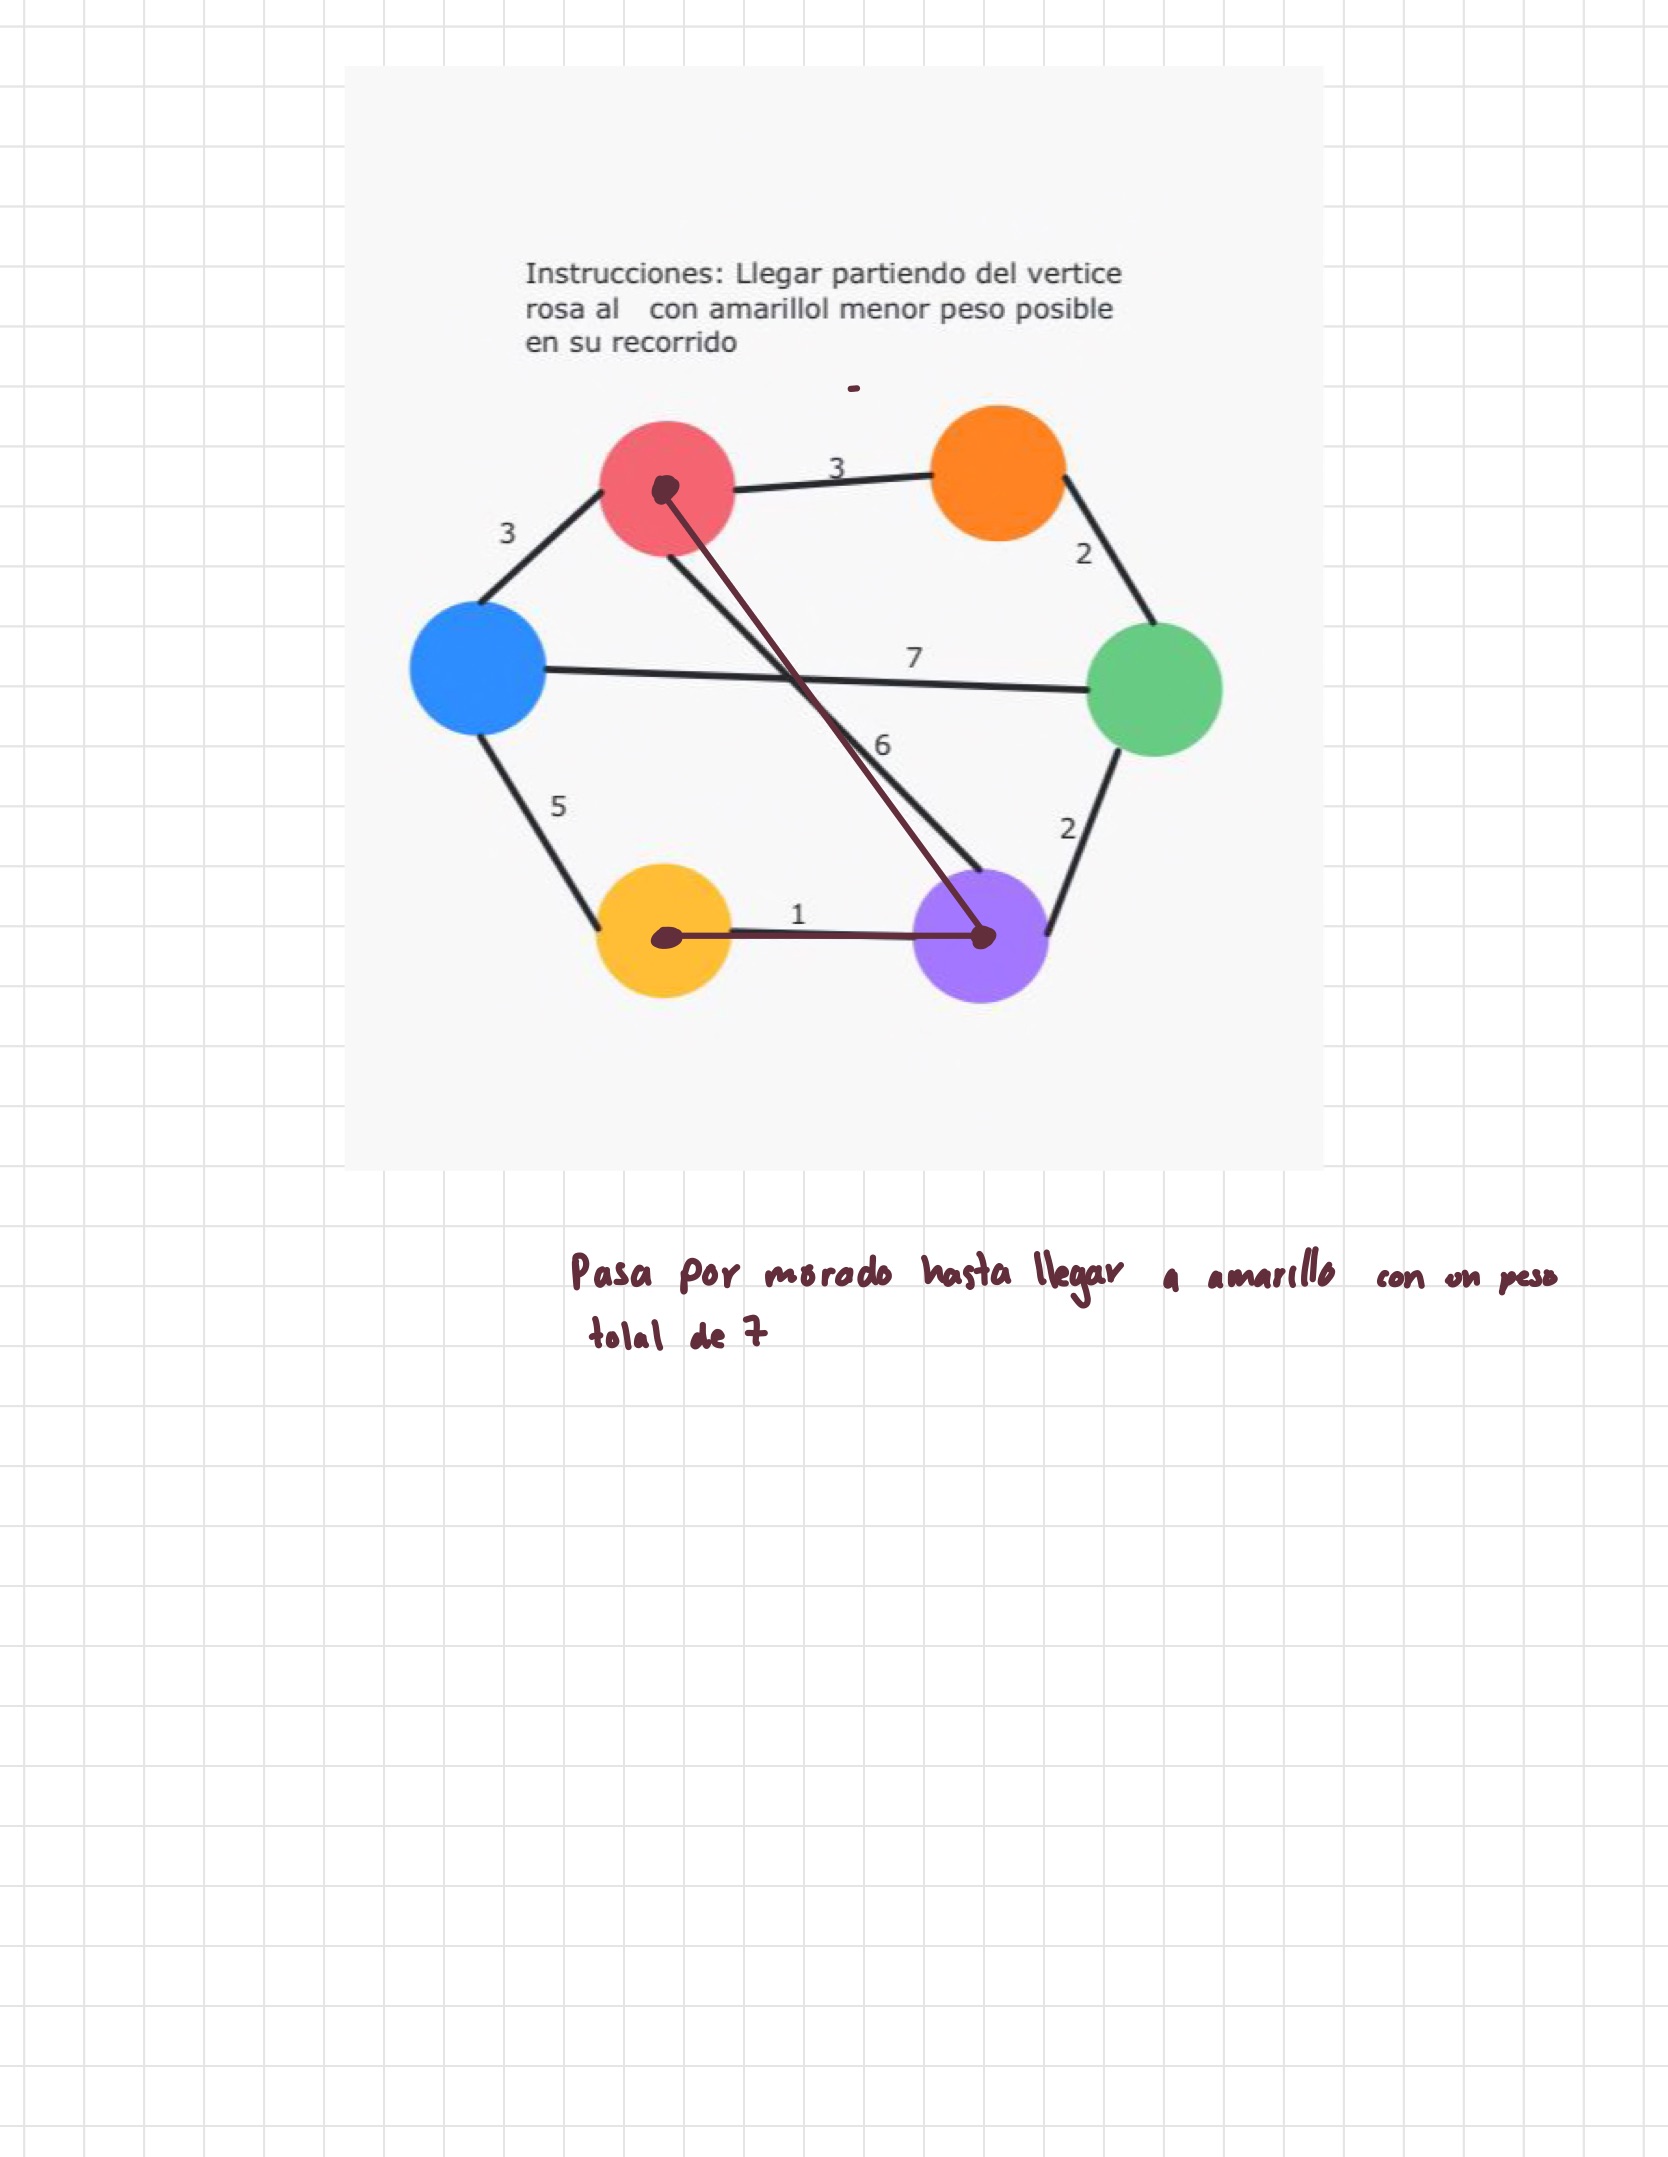 Instrucciones: Llegar partiendo del vertice
rosa al con amarillol menor peso posible
en su recorrido
3
3
2
7
6
5
2
1
Pasa por morado hasta llegar a amarillo con un peso
total de 7